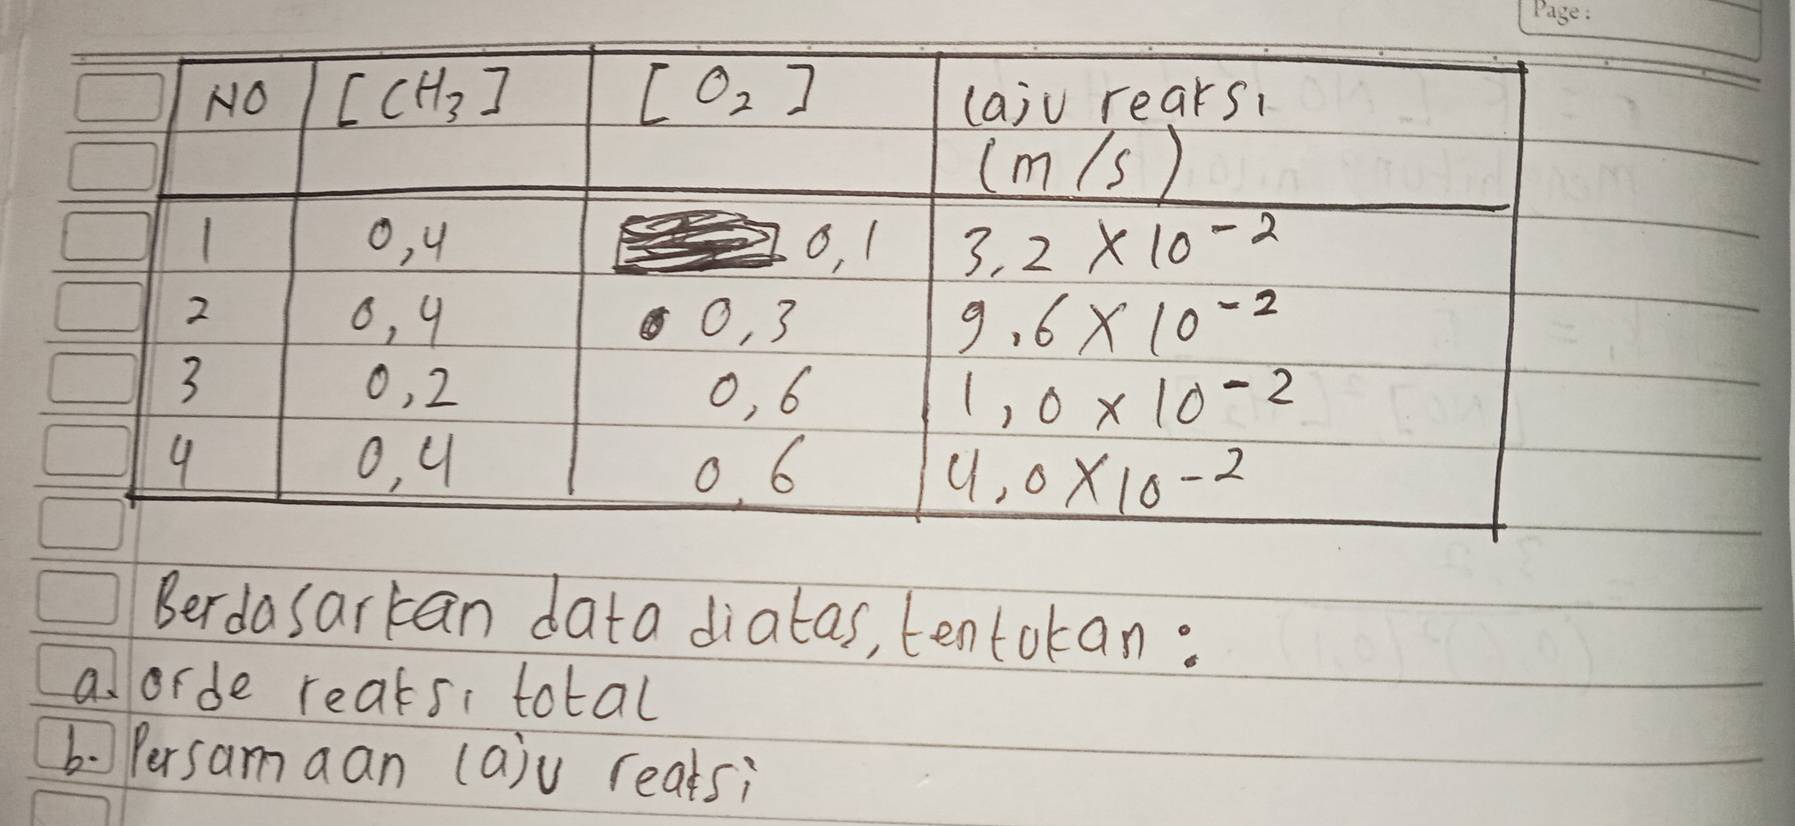 Page:
NO [CH3] [O2] laju reaksi
(m/s)
1 0,4 0,1 3,2 × 10-2
2 0,4 0,3 9,6 × 10-2
3 0,2 0,6 1,0 × 10-2
4 0,4 0,6 4,0 × 10-2
Berdasarkan data diatas, tentukan :
a. orde reaksi total
b. Persamaan laju reaksi